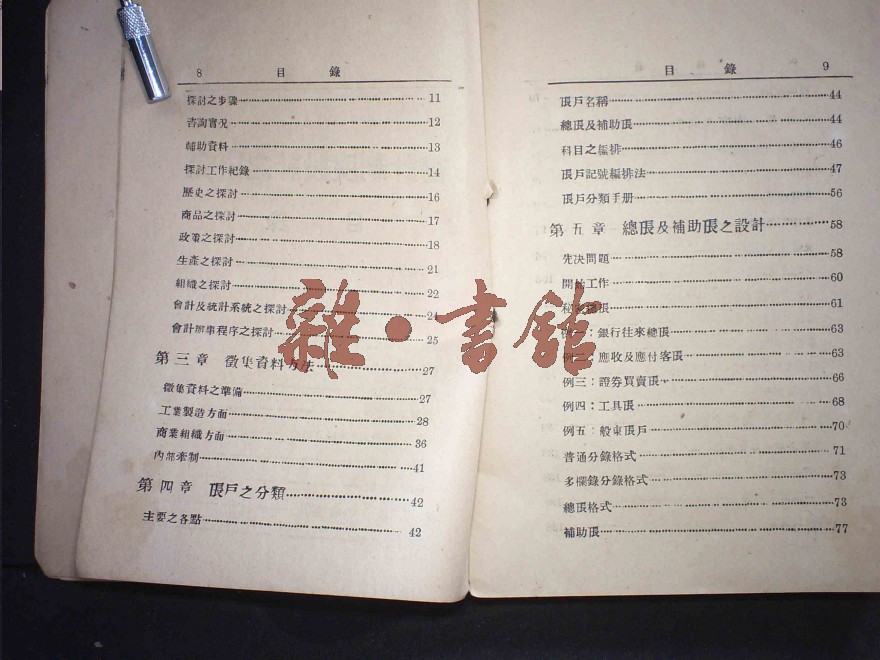 8 目錄
探討之步驟 11
咨詢實況 12
輔助資料 13
探討工作紀錄 14
歷史之探討 16
商品之探討 17
政策之探討 18
生產之探討 21
組織之探討 22
會計及統計系統之探討 24
會計辦事程序之探討 25
第三章 徵集資料方法 27
徵集資料之準備 27
工業製造方面 28
商業組織方面 36
內部牽制 41
第四章 賬戶之分類 42
主要之各點 42
目錄 9
賬戶名稱 44
總賬及補助賬 44
科目之編排 46
賬戶記號編排法 47
賬戶分類手册 56
第五章 總賬及補助賬之設計 58
先決問題 58
開始工作 60
秘 賬 61
例一：銀行往來總賬 63
例二：應收及應付客賬 63
例三：證券買賣賬 66
例四：工具賬 68
例五：股東賬戶 70
普通分錄格式 71
多欄錄分錄格式 73
總賬格式 73
補助賬 77
雜·書館